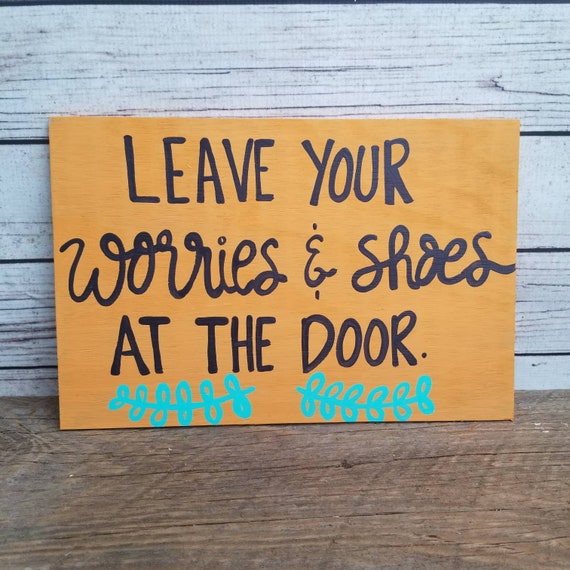 LEAVE YOUR
worries & shoes
AT THE DOOR.